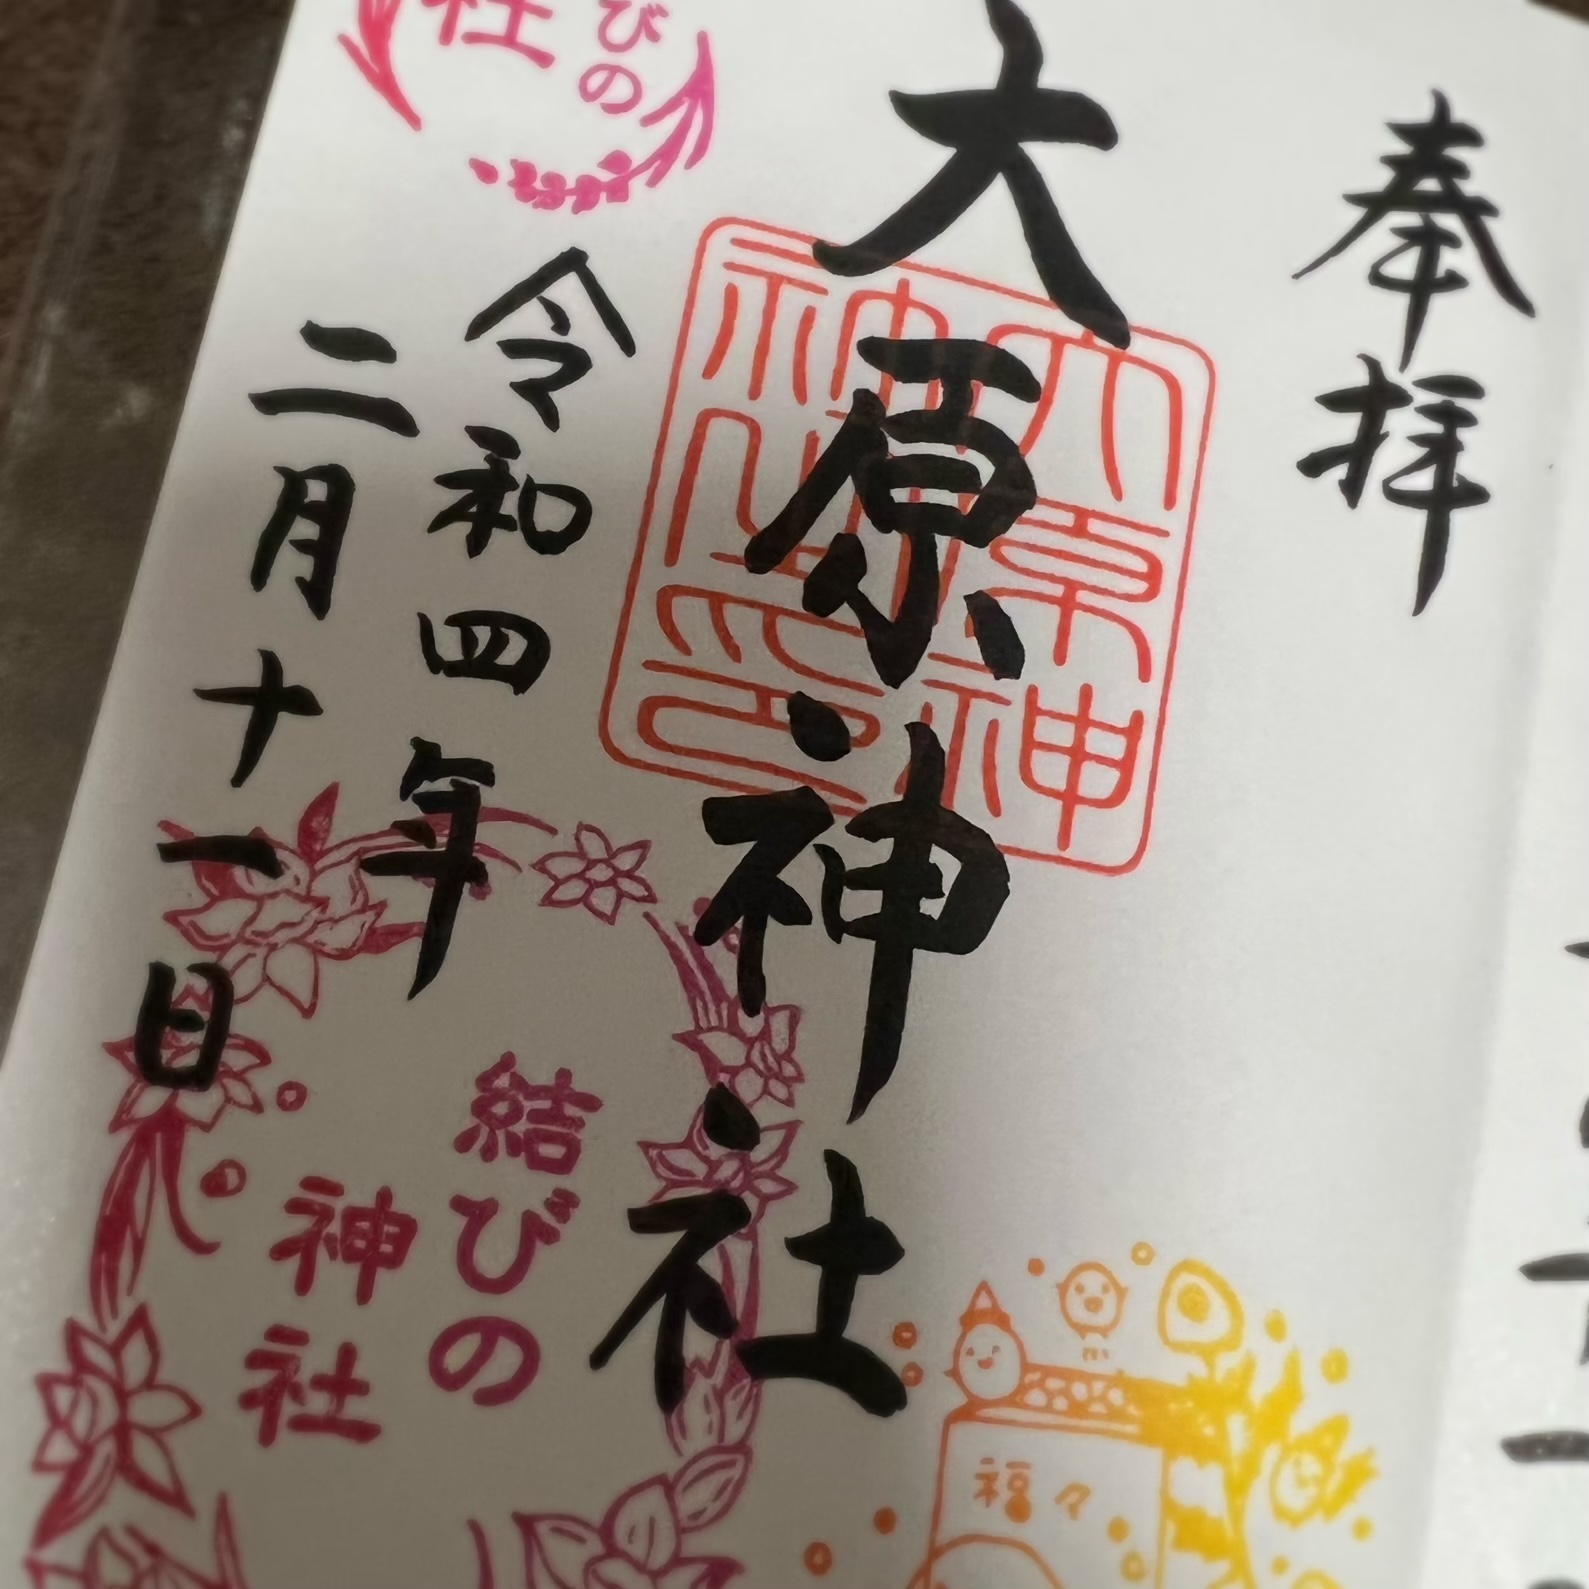 奉拝
大原神社
大原神
神社印
令和四年
二月十一日
びの
社
結びの
神社
福々